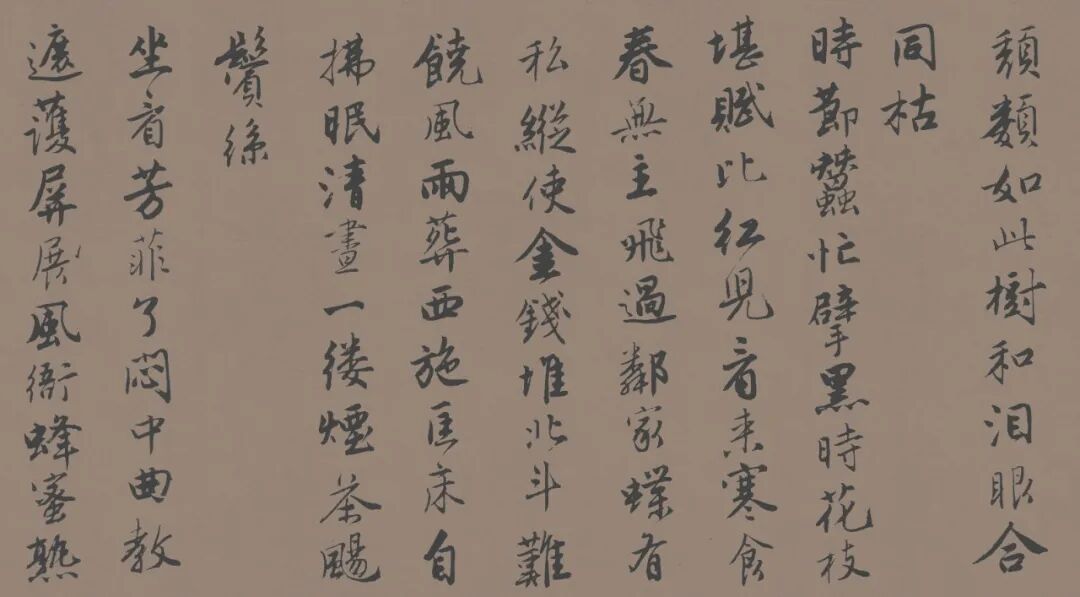 頹類如此樹和泪眼合
同枯
時節蠶忙擘黑時花枝
堪賦比紅兒看来寒食
春無主飛過鄰家蝶有
私縱使金錢堆北斗難
饒風雨葬西施匡床自
拂眠清晝一縷煙茶颺
鬢絲
坐看芳菲了悶中曲教
遮護屏展風衙蜂蜜熟